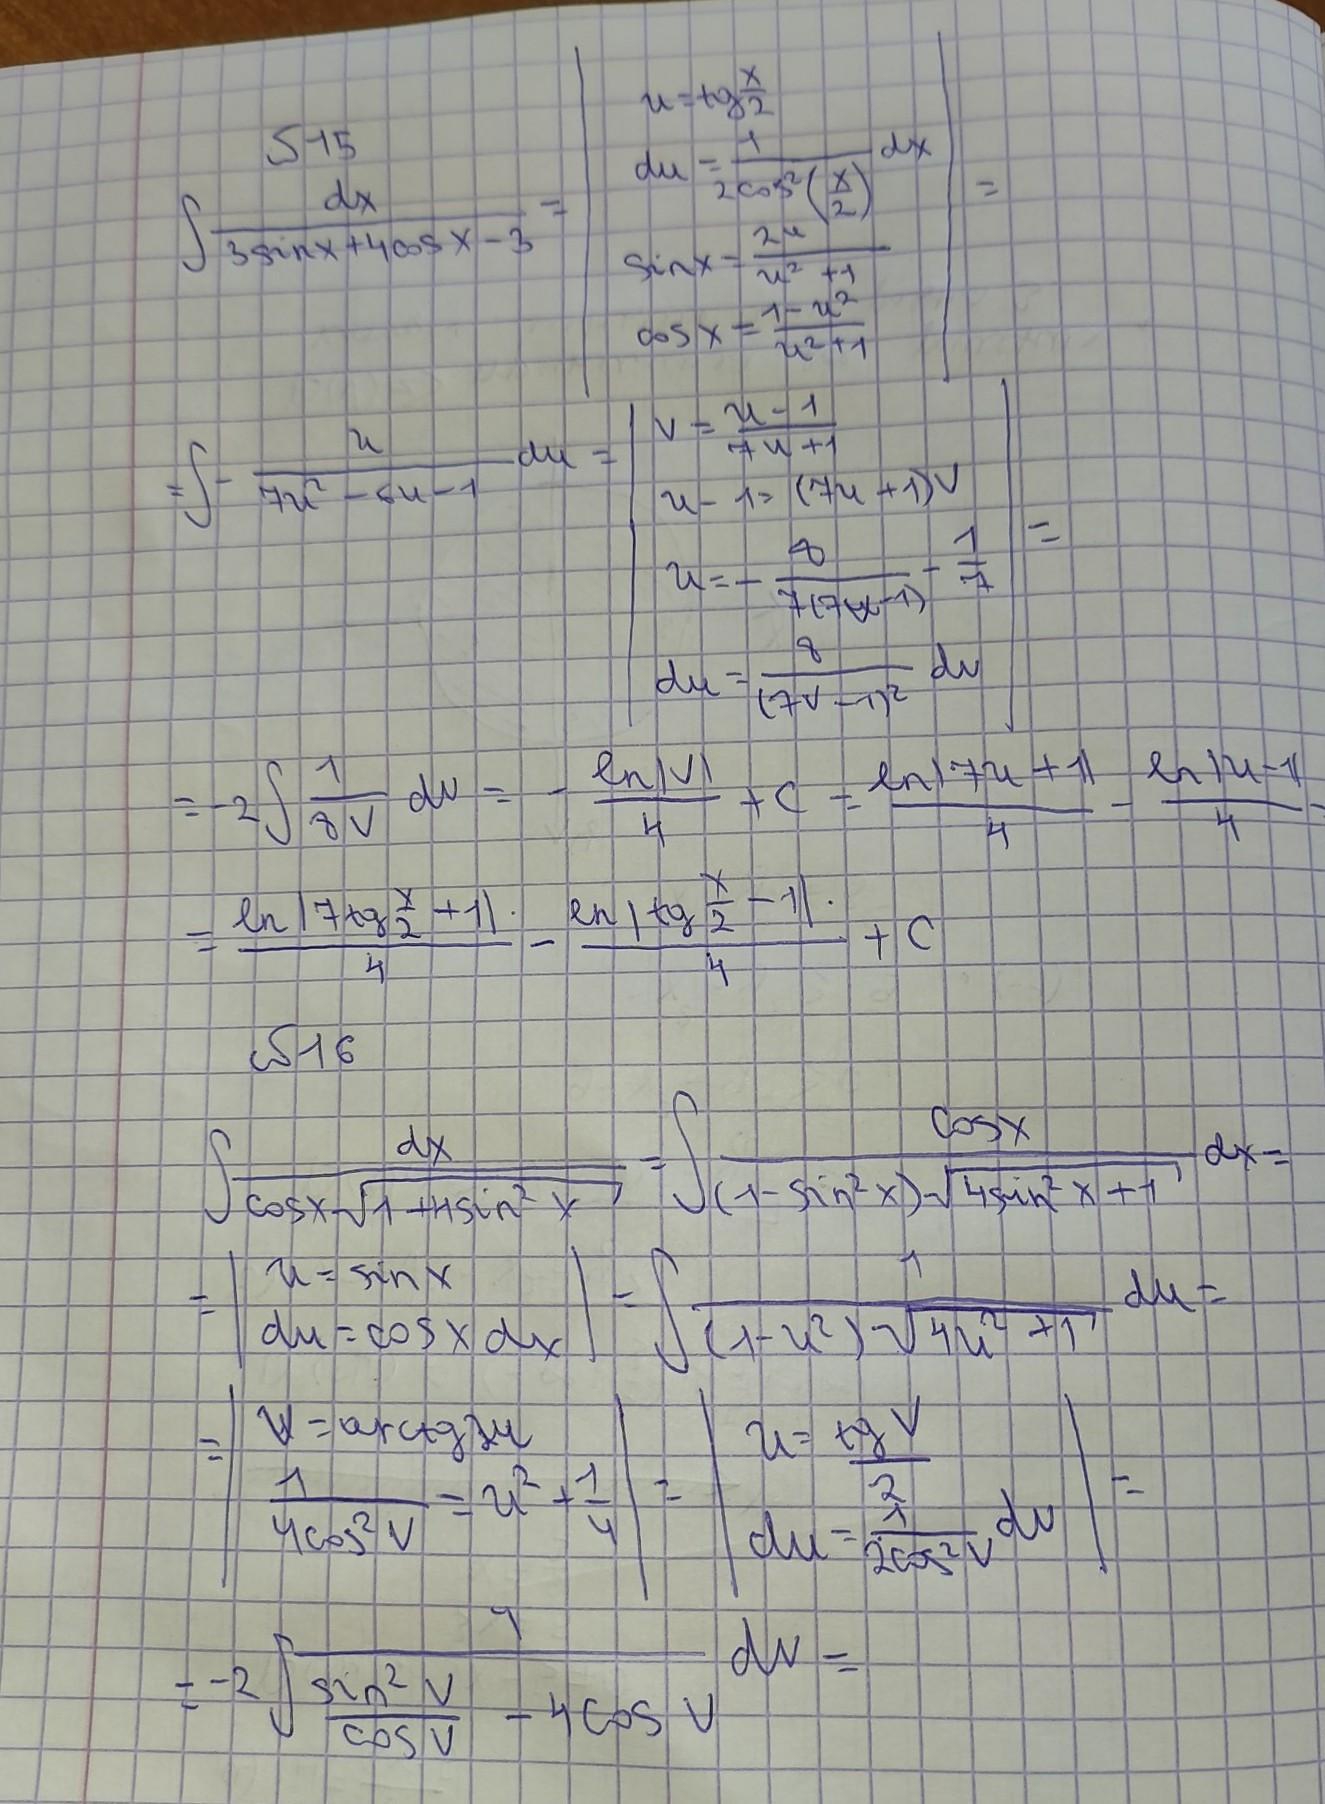 №15
∫ dx / (3sinx+4cosx−3) = | u = tg x/2
du = 1 / (2cos²(x/2)) dx
sinx = 2u / (u²+1)
cosx = (1−u²) / (u²+1) | =
= ∫ − u / (7u²−6u−1) du = | v = (u−1) / (7u+1)
u−1 = (7u+1)v
u = − 8 / (7(7v−1)) − 1/7
du = 8 / (7v−1)² dv | =
= −2∫ 1 / (8v) dv = − ln|v| / 4 + C = ln|7u+1| / 4 − ln|u−1| / 4 =
= ln|7tg x/2 +1| / 4 − ln|tg x/2 −1| / 4 + C
№16
∫ dx / (cosx√(1+4sin²x)) = ∫ cosx / ((1−sin²x)√(4sin²x+1)) dx =
= | u = sinx
du = cosx dx | = ∫ 1 / ((1−u²)√(4u²+1)) du =
= | v = arctg2u
1 / (4cos²v) = u² + 1/4 | = | u = tgv / 2
du = 1 / (2cos²v) dv | =
= −2∫ 1 / (sin²v / cosv − 4cosv) dv =